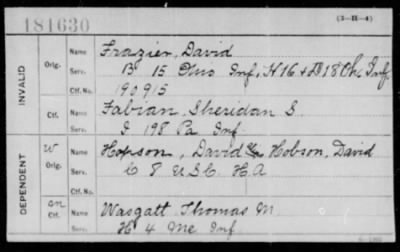 181630
(3-H-4)
INVALID
Orig.
Name
Frazier, David
Serv.
B 15 Ohio Inf, H 16 + D 18 Oh Inf
Ctf. No.
190915
Ctf.
Name
Fabian, Sheridan S.
Serv.
I 198 Pa Inf
DEPENDENT
W
Orig.
Name
Hopson, David Hobson, David
Serv.
C 8 U.S.C. H.A
Ctf. No.
Ctf.
Name
Wasgatt Thomas M
Serv.
H 4 Me Inf